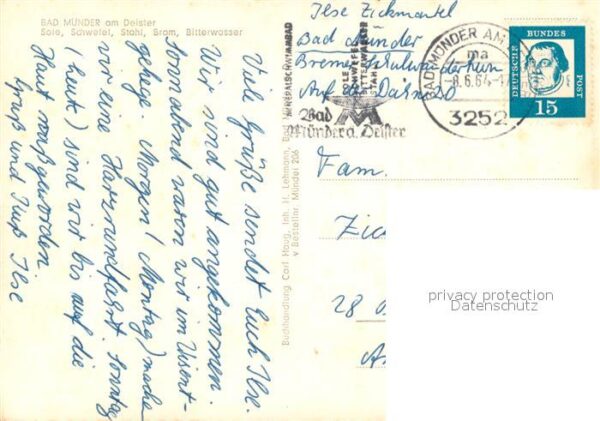 BAD MÜNDER am Deister
Sole, Schwefel, Stahl, Brom, Bitterwasser
Viele Grüße sendet Euch Ilse.
Wir sind gut angekommen.
Sonnabend waren wir im Wisent-
gehege Morgen (Montag) machen
wir eine Harzrandfahrt. Sonntag
(heute) sind wir bis auf die
Haut naß geworden.
Gruß und Kuß Ilse
Buchhandlung Carl Haug, Inh. H. Lehmann, Bad
v Bestellnr. Münder 206
Ilse Zickmantel
Bad Münder
Bremer
Auf
MINERALSCHWIMMBAD
Bad
Münder a. Deister
BAD MÜNDER AM
ma
.6.64-1
3252
DEUTSCHE
BUNDES
POST
15
Fam.
Zic
28
privacy protection
Datenschutz